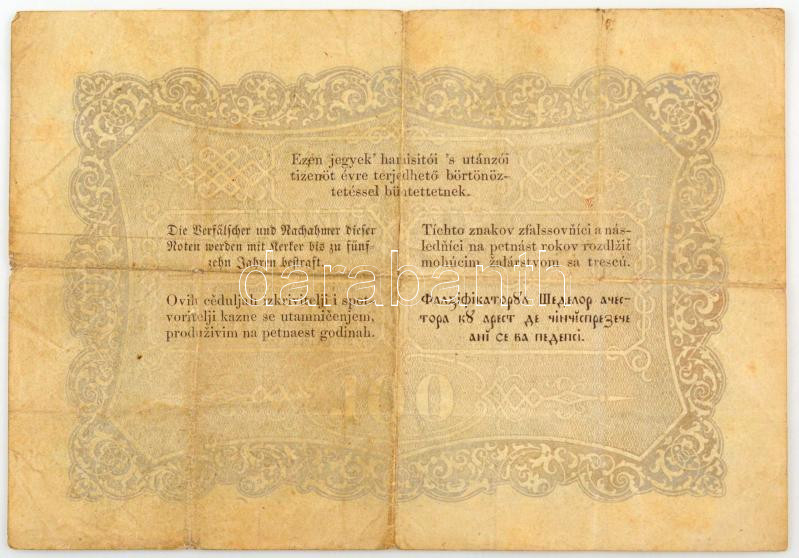 Ezen jegyek' hamisitói 's utánzói
tizenöt évre terjedhető börtönöz-
tetéssel büntettetnek.
Die Verfälscher und Nachahmer dieser
Noten werden mit Kerker bis zu fünf-
zehn Jahren bestraft.
Tíchto znakov zfalssovňíci a nás-
ledňíci na petnást rokov rozdlžiť
mohúcim žalárstvom sa trescú.
Ovih cěduljah izkrivitelji i spot-
voritelji kazne se utamničenjem,
produživim na petnaest godinah.
Фалзіфікаторꙋл Шеделор ачес-
тора кꙋ арест де чінчіспрезече
ані се ва педепсі.
100
darabanth